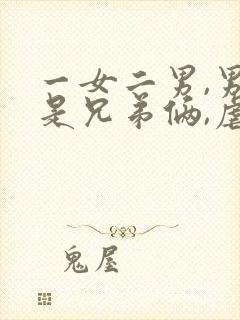 一女二男,男
是兄弟俩,虐
鬼屋